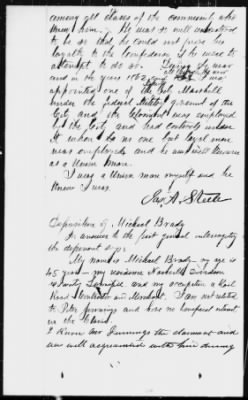 among all classes of the community who
knew him. He was so well understood
to be so that he could not prove his
loyalty to the Confederacy if he were to
attempt to do so. During the war
and in the years 1862
appointed one of the City Marshall
under the federal Military government of the
City and the Claimant was employed
by the City and had contracts under
it when no as one but loyal men
was employed and he was well known
as a Union Man.
I was a Union man myself and he
knew I was.
Jas. A. Steele
Deposition of Michael Brady
In answer to the first general interrogatory
the deponent says:
My name is Michael Brady my age is
45 years my residence Nashville Davidson
County Tennessee and my occupation a Rail
Road Contractor and Merchant. I am not related
to Peter Jennings and have no beneficial interest
in the Claim
I know Mr Jennings the claimant and
was well acquainted with him during